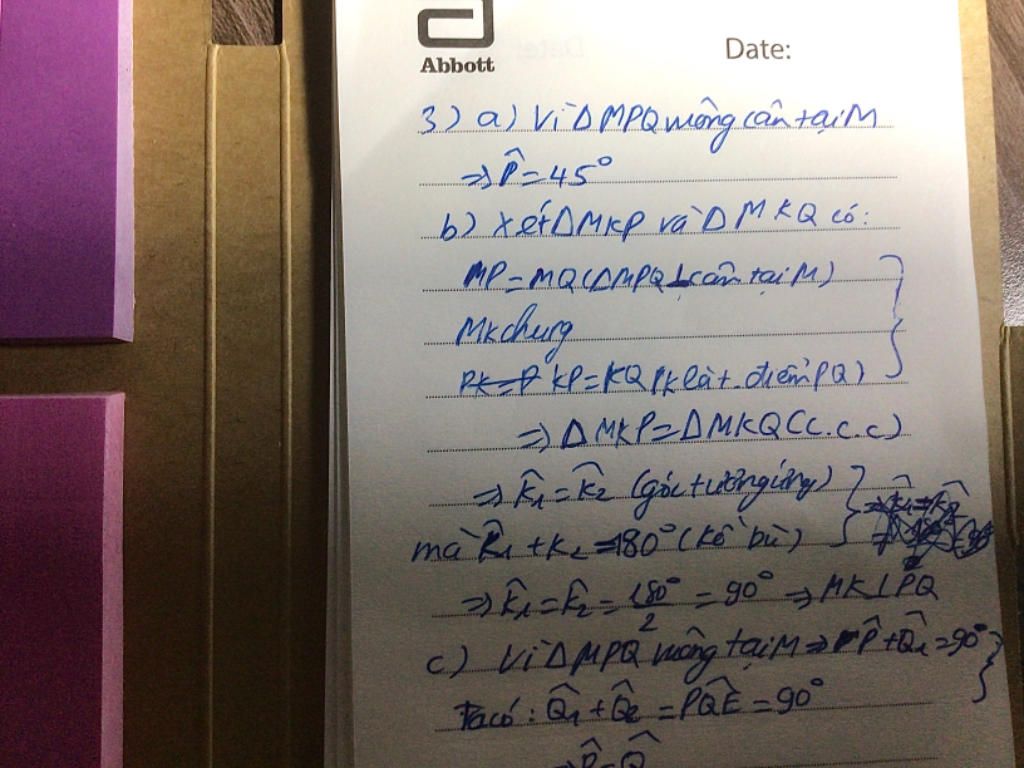 Abbott
Date:
3) a) Vì Δ MPQ vuông cân tại M
⇒ P̂ = 45°
b) Xét Δ MKP và Δ MKQ có:
MP = MQ (Δ MPQ ⊥ cân tại M)
MK chung
KP = KQ (K là t.điểm PQ)
⇒ Δ MKP = Δ MKQ (c.c.c)
⇒ K̂₁ = K̂₂ (góc tương ứng)
mà K̂₁ + K₂ = 180° (kề bù)
⇒ K̂₁ = K̂₂ = 180°/2 = 90° ⇒ MK ⊥ PQ
c) Vì Δ MPQ vuông tại M ⇒ P̂ + Q̂₁ = 90°
Ta có: Q̂₁ + Q̂₂ = PQ̂E = 90°
⇒ P̂ = Q̂